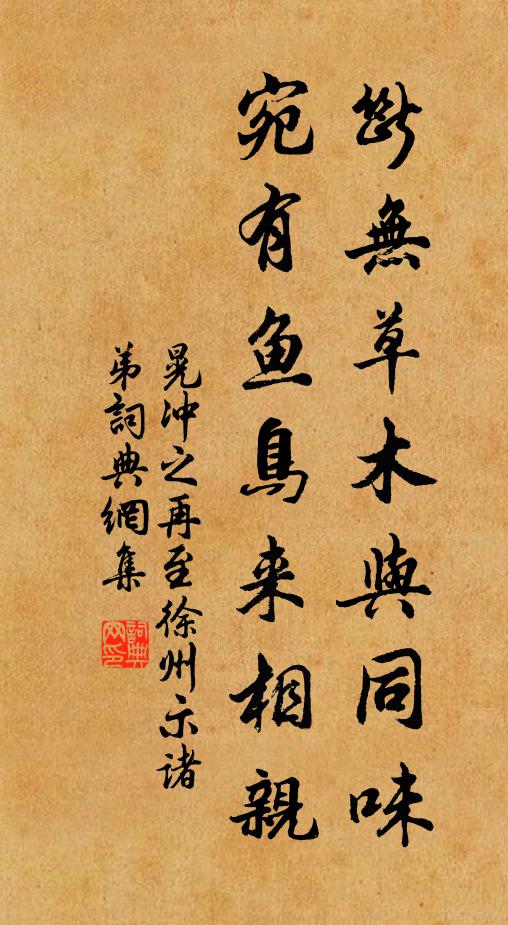 斷無草木與同味
宛有鱼鳥来相親
晁冲之再至徐州示諸
弟詞典網集
詞典
网印